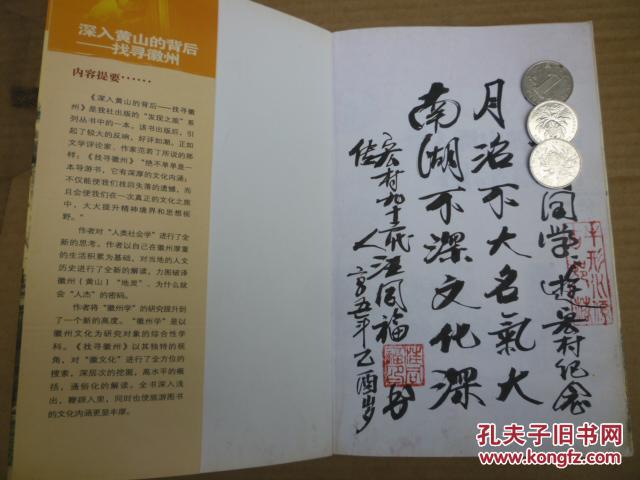 深入黄山的背后
——找寻徽州
内容提要……
《深入黄山的背后——找寻徽
州》是我社出版的“发现之旅”系
列丛书中的一本。该书出版后，引
起了较大的反响，好评如潮。正如
文学评论家、作家范若丁所说的那
样：《找寻徽州》“绝不单单是一
本导游书，它有深厚的文化内涵，
不仅能使我们找回失落的遗憾，而
且会使我们在一次真正的文化之旅
中，大大提升精神境界和思想视
野。”
作者对“人类社会学”进行了全
新的思考。作者以自己在徽州厚重
的生活积累为基础，对当地的人文
历史进行了全新的解读，力图破译
徽州（黄山）“地灵”，为什么就
会“人杰”的密码。
作者将“徽州学”的研究提升到
了一个新的高度。“徽州学”是以
徽州文化为研究对象的综合性学
科。《找寻徽州》以其独特的视
角，对“徽文化”进行了全方位的
搜索，深层次的挖掘，高水平的概
括，通俗化的解读。全书深入浅
出，鞭辟入里，同时也使旅游图书
的文化内涵更显丰厚。
同学游宏村纪念
月沼不大名气大
南湖不深文化深
宏村九十二代汪同福书
二〇〇五年乙酉岁
孔夫子旧书网
www.kongfz.com